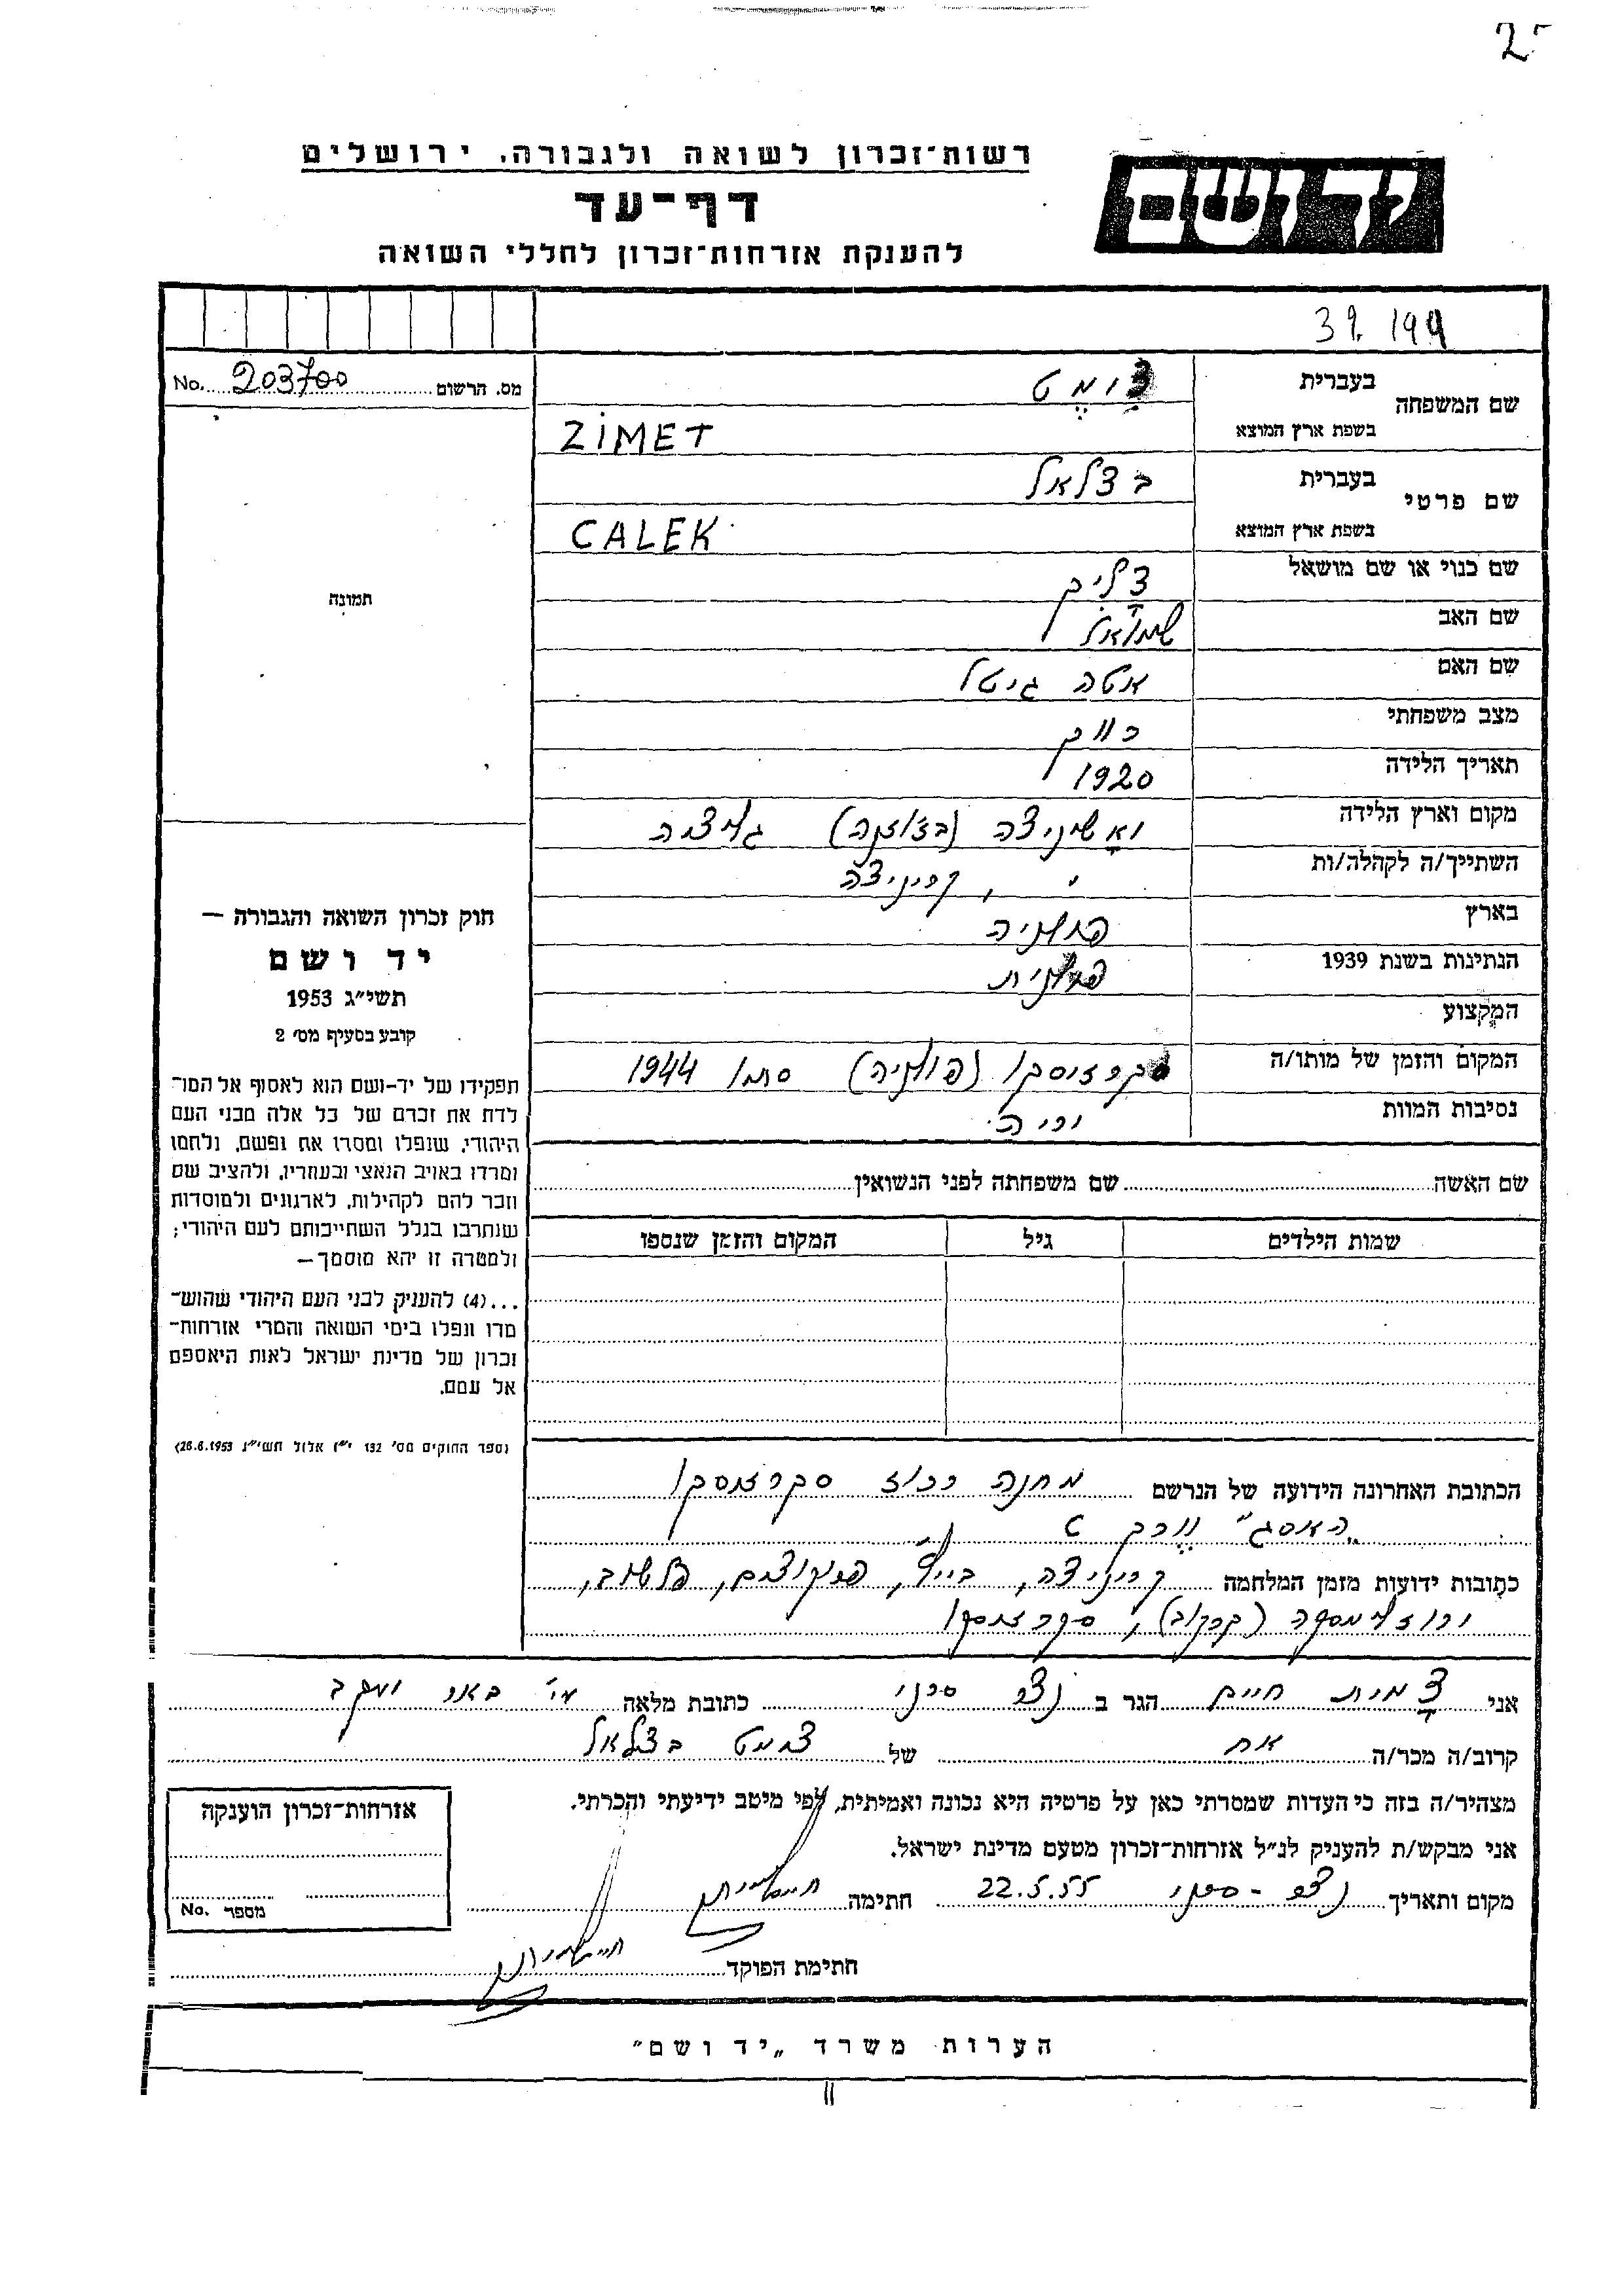 2-
רשות־זכרון לשואה ולגבורה, ירושלים
יד ושם
דף־עד
להענקת אזרחות־זכרון לחללי השואה
39. 199
מס. הרשום 203700 No.
שם המשפחה
בעברית
בשפת ארץ המוצא ZIMET
שם פרטי
בעברית בצלאל
בשפת ארץ המוצא CALEK
שם כנוי או שם מושאל
שם האב שמואל
שם האם אטה גיטל
מצב משפחתי רווק
תאריך הלידה 1920
מקום וארץ הלידה גליציה
השתייך/ה לקהלה/ות " , קריניצה
בארץ פולניה
הנתינות בשנת 1939 פולנית
המקצוע
המקום והזמן של מותו/ה סקרז'יסקו (פולניה) 1944
נסיבות המוות יריה.
תמונה
חוק זכרון השואה והגבורה —
יד ושם
תשי״ג 1953
קובע בסעיף מס׳ 2
תפקידו של יד-ושם הוא לאסוף אל המו־
לדת את זכרם של כל אלה מבני העם
היהודי, שנפלו ומסרו את נפשם, נלחמו
ומרדו באויב הנאצי ובעוזריו, ולהציב שם
וזכר להם לקהילות, לארגונים ולמוסדות
שנחרבו בגלל השתייכותם לעם היהודי;
ולמטרה זו יהא מוסמך —
...(4) להעניק לבני העם היהודי שהוש־
מדו ונפלו בימי השואה והמרי אזרחות־
זכרון של מדינת ישראל לאות היאספם
אל עמם.
(ספר החוקים מס׳ 132 י״ז אלול תשי״ג 28.8.1953)
שם האשה שם משפחתה לפני הנשואין
שמות הילדים גיל המקום והזמן שנספו
הכתובת האחרונה הידועה של הנרשם מחנה רכוז
„האסג״ ווֶרק C
כתובות ידועות מזמן המלחמה קריניצה, פלשוב,
אני צימט חיים הגר ב כתובת מלאה
קרוב/ה מכר/ה אח של צימט בצלאל
מצהיר/ה בזה כי העדות שמסרתי כאן על פרטיה היא נכונה ואמיתית, לפי מיטב ידיעתי והכרתי.
אני מבקש/ת להעניק לנ״ל אזרחות־זכרון מטעם מדינת ישראל.
מקום ותאריך 22.5.55 חתימה
חתימת הפוקד
אזרחות־זכרון הוענקה
מספר No.
הערות משרד „יד ושם״